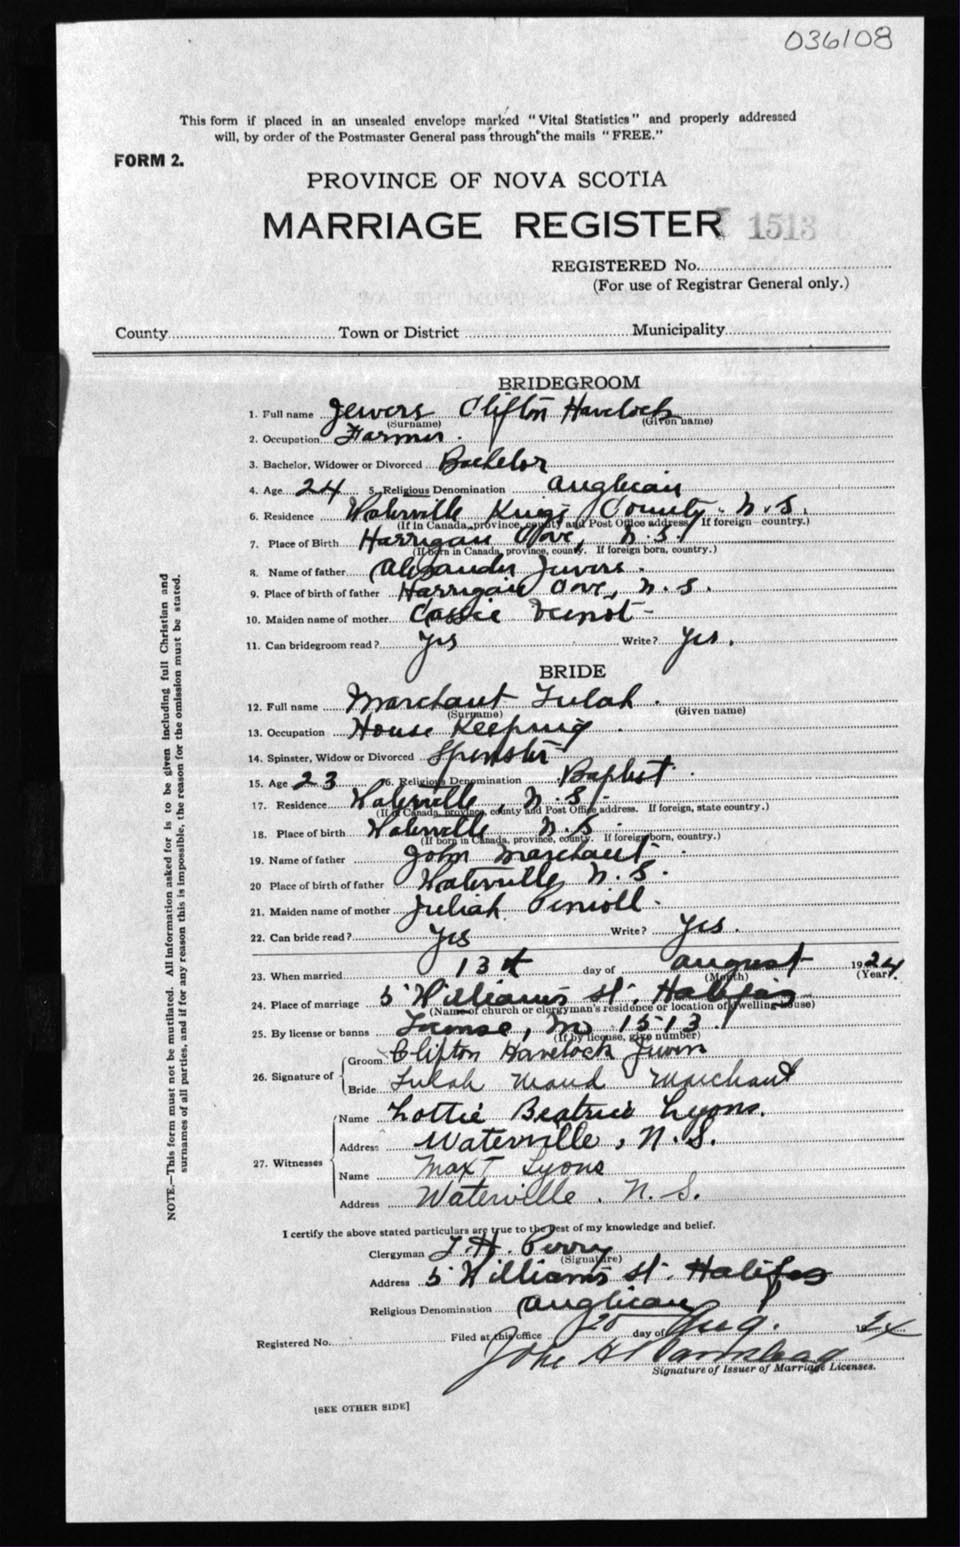 036108
This form if placed in an unsealed envelope marked "Vital Statistics" and properly addressed
will, by order of the Postmaster General pass through the mails "FREE."
FORM 2.
PROVINCE OF NOVA SCOTIA
MARRIAGE REGISTER 1513
REGISTERED No.
(For use of Registrar General only.)
County Town or District Municipality
BRIDEGROOM
1. Full name Jewers Clifton Havelock
(Surname) (Given name)
2. Occupation Farmer.
3. Bachelor, Widower or Divorced Bachelor
4. Age 24 5. Religious Denomination Anglican
6. Residence Waterville Kings County. N.S.
(If in Canada, province, county and Post Office address. If foreign—country.)
7. Place of Birth Harrigan Cove, N.S.
(If born in Canada, province, county. If foreign born, country.)
8. Name of father Alexander Jewers.
9. Place of birth of father Harrigan Cove, N.S.
10. Maiden name of mother Cassie
11. Can bridegroom read? Yes Write? Yes.
BRIDE
12. Full name Marchant Lulah.
(Surname) (Given name)
13. Occupation House Keeping
14. Spinster, Widow or Divorced Spinster
15. Age 23 16. Religious Denomination Baptist.
17. Residence Waterville, N.S.
(If in Canada, province, county and Post Office address. If foreign, state country.)
18. Place of birth Waterville N.S.
(If born in Canada, province, county. If foreign born, country.)
19. Name of father John Marchant.
20 Place of birth of father Waterville N.S.
21. Maiden name of mother Juliah
22. Can bride read? Yes Write? Yes.
23. When married 13th day of August 1924
(Month) (Year)
24. Place of marriage 5 Williams St, Halifax
(Name of church or clergyman's residence or location of dwelling house)
25. By license or banns License, No 1513.
(If by license, give number)
26. Signature of Groom Clifton Havelock Jewers
Bride Lulah Maud Marchant
27. Witnesses Name Lottie Beatrice Lyons.
Address Waterville, N.S.
Name Max T Lyons
Address Waterville. N.S.
I certify the above stated particulars are true to the best of my knowledge and belief.
Clergyman T.H. Perry
(Signature)
Address 5 Williams St. Halifax
Religious Denomination Anglican
Registered No. Filed at this office 20 day of Aug. 1924
John H
Signature of Issuer of Marriage Licenses.
[SEE OTHER SIDE]
NOTE.—This form must not be mutilated. All information asked for is to be given including full Christian and
surnames of all parties, and if for any reason this is impossible, the reason for the omission must be stated.